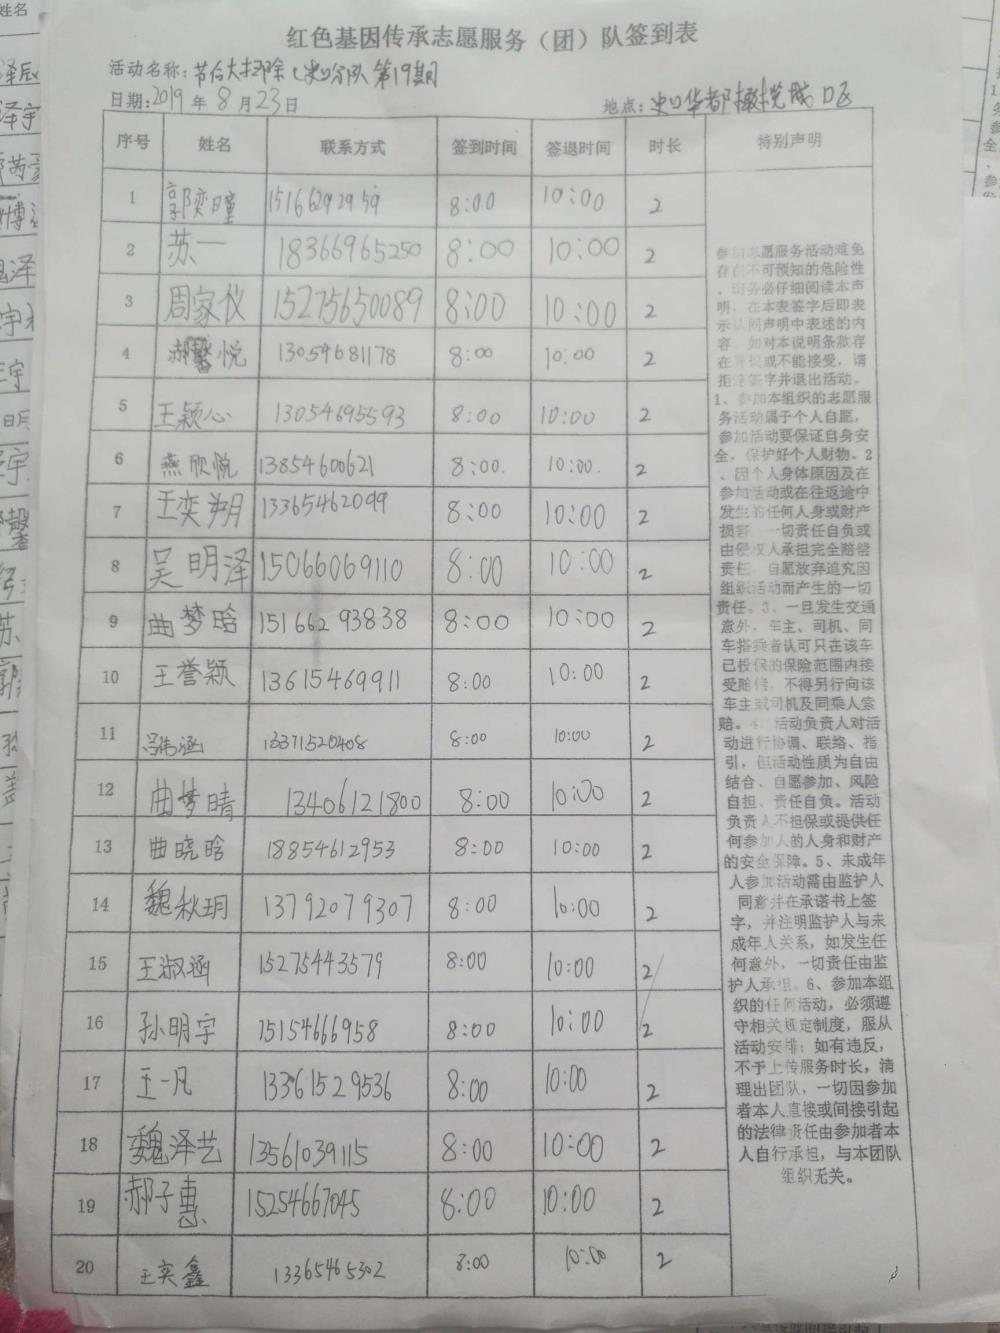 红色基因传承志愿服务（团）队签到表
活动名称：节后大扫除（史口分队第19期
日期：2019年8月23日 地点：史口华都橄榄城D区
序号 姓名 联系方式 签到时间 签退时间 时长 特别声明
1 郭奕瞳 15166292959 8:00 10:00 2
2 苏一 18366965250 8:00 10:00 2
3 周家仪 15275650089 8:00 10:00 2
4 郝馨悦 13054681178 8:00 10:00 2
5 王颖心 13054695593 8:00 10:00 2
6 燕欣悦 13854600621 8:00. 10:00. 2
7 王奕翔 13365462099 8:00 10:00 2
8 吴明泽 15066069110 8:00 10:00 2
9 曲梦晗 15166293838 8:00 10:00 2
10 王誉颖 13615469911 8:00 10:00 2
11 吕伟涵 13371520408 8:00 10:00 2
12 曲梦晴 13406121800 8:00 10:00 2
13 曲晓晗 18854612953 8:00 10:00 2
14 魏秋玥 13792079307 8:00 10:00 2
15 王淑涵 15275443579 8:00 10:00 2
16 孙明宇 15154666958 8:00 10:00 2
17 王一凡 13361529536 8:00 10:00 2
18 魏泽艺 13561039115 8:00 10:00 2
19 郝子惠 15254667045 8:00 10:00 2
20 王奕鑫 13365465302 8:00 10:00 2
参加志愿服务活动难免
存在不可预知的危险性
，请务必仔细阅读本声
明，在本表签字后即表
示认同声明中表述的内
容。如对本说明条款存
在异议或不能接受，请
拒绝签字并退出活动。
1、参加本组织的志愿服
务活动属于个人自愿，
参加活动要保证自身安
全，保护好个人财物。2
、因个人身体原因及在
参加活动或在往返途中
发生的任何人身或财产
损害，一切责任自负或
由侵权人承担完全赔偿
责任，自愿放弃追究因
组织活动而产生的一切
责任。3、一旦发生交通
意外，车主、司机、同
车搭乘者认可只在该车
已投保的保险范围内接
受赔偿，不得另行向该
车主或司机及同乘人索
赔。4、活动负责人对活
动进行协调、联络、指
引，但活动性质为自由
结合、自愿参加、风险
自担、责任自负。活动
负责人不担保或提供任
何参加人的人身和财产
的安全保障。5、未成年
人参加活动需由监护人
同意并在承诺书上签
字，并注明监护人与未
成年人关系，如发生任
何意外，一切责任由监
护人承担。6、参加本组
织的任何活动，必须遵
守相关规定制度，服从
活动安排；如有违反，
不予上传服务时长，清
理出团队，一切因参加
者本人直接或间接引起
的法律责任由参加者本
人自行承担，与本团队
组织无关。